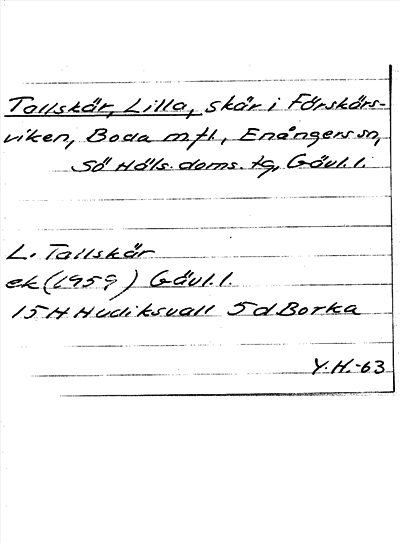 Tallskär, Lilla, skär i Förskärs-
viken, Boda m fl., Enångers sn,
Sö Häls. doms. tg, Gävl. l.
L. Tallskär
ek (1959) Gävl. l.
15 H Hudiksvall 5d Borka
Y.H.-63